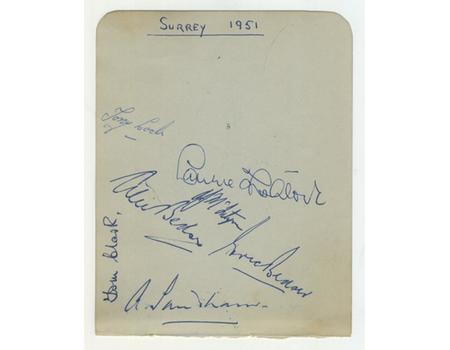 SURREY 1951
Tony Lock
Laurie Fishlock
Alec Bedser
Eric Bedser
Tom Clark,
A. Sandham.